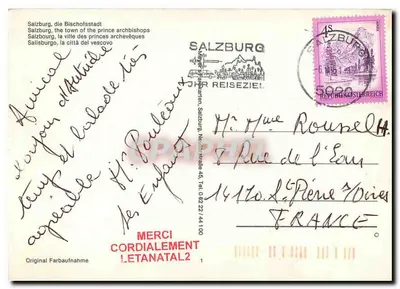 Salzburg, die Bischofsstadt
Salzburg, the town of the prince archbishops
Salzbourg, la ville des princes archevêques
Salisburgo, la città del vescovo
SALZBURG
IHR REISEZIEL
SALZBURG
5020
4S
REPUBLIK ÖSTERREICH
Amical
bonjour d'Autriche
temps et balade très
agréable
Mr
les Enfants
Mr Mme Roussel H.
7 rue de l'Eau
14170. St Pierre s/Dives
FRANCE
MERCI
CORDIALEMENT
LETANATAL2
Original Farbaufnahme
1